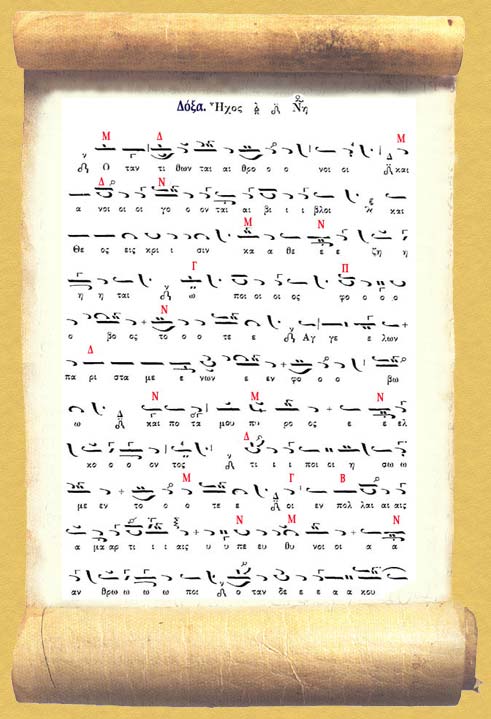 Δόξα. Ἦχος Νη
Μ Δ Μ
Ο ταν τι θων ται αι θρο ο ο νοι οι και
Δ Ν
α νοι οι οι γο ο ον ται αι βι ι ι βλοι και
Μ Ν
Θε ος εις κρι ι σιν κα α θε ε ε ζη η
Γ Π
η η ται ω ποι οι οι ος φο ο ο ο
Ν
ο βος το ο ο τε ε Αγ γε ε λων
Δ
πα ρι στα με ε νων ε εν φο ο ο βω
Ν Μ Ν
ω και πο τα μου πυ ρος ε ε ελ
Δ
κο ο ο ον τος τι ι ι ποι οι η σω ω
Μ Γ Β
με εν το ο ο τε ε οι εν πολ λαι αι αις
Ν Μ Ν
α μα αρ τι ι ι αις υ υ πε ευ θυ νοι οι α α
αν θρω ω ω ω ποι ο ταν δε ε ε α α κου